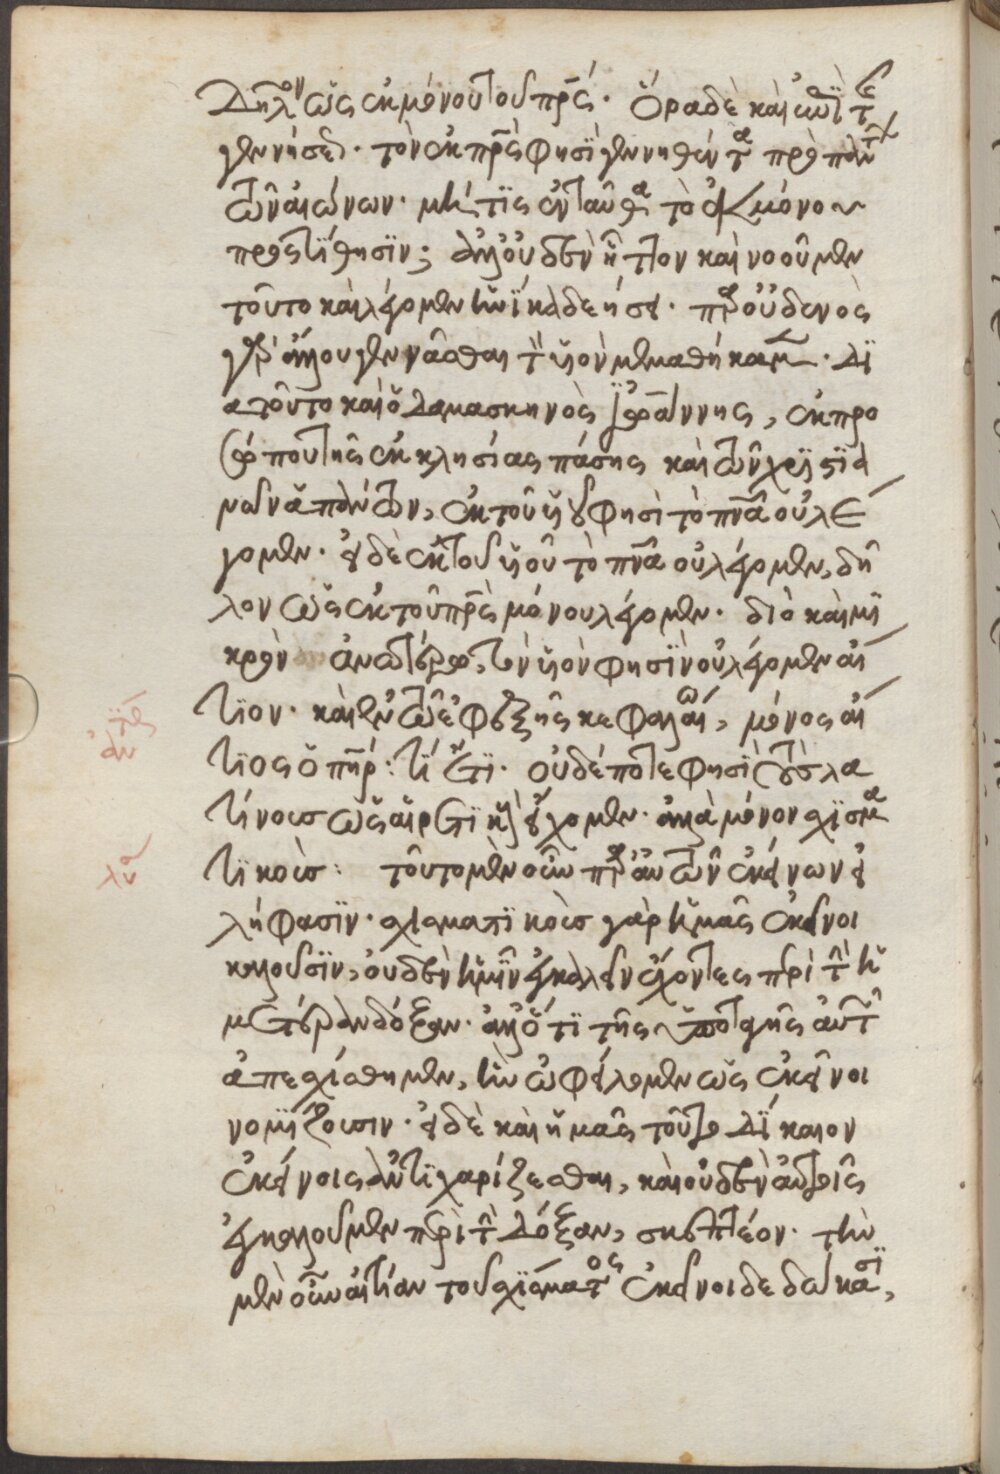 δῆλον ὡς ἐκ μόνου τοῦ πρς. ὅρα δὲ καὶ ἐπὶ τ
γεννήσεως. τὸν ἐκ πρς φησὶ γεννηθέντα πρὸ πάντ
τῶν αἰώνων. μή τις ἐνταῦθα τὸ ἐκ μόνου
προςτίθησιν; ἀλλ' οὐδὲν ἧττον καὶ νοοῦμεν
τοῦτο καὶ λέγομεν ἡνίκα δεήσει. παρ' οὐδενὸς
γὰρ ἄλλου γεννᾶσθαι τ υἱὸν μεμαθήκαμεν. δι
α τοῦτο καὶ ὁ δαμασκηνὸς ἰωάννης, ἐκ προ
σώπου τῆς ἐκκλησίας πάσης καὶ τῶν χριστια
νῶν ἁπάντων, ἐκ τοῦ υἱοῦ φησὶ τὸ πνα οὐ λέ
γομεν. εἰ δὲ ἐκ τοῦ υἱοῦ τὸ πνα οὐ λέγομεν, δῆ
λον ὡς ἐκ τοῦ πρς μόνου λέγομεν. διὸ καὶ μι
κρὸν ἀνωτέρω, τὸν υἱὸν φησὶν οὐ λέγομεν αἴ
τιον. καὶ ἐν τῷ ἐφεξῆς κεφαλαίω, μόνος αἴ
τιος ὁ πηρ: τί ἔτι. οὐδέποτε φησὶ τοὺς λα
τίνους ὡς αἱρετικοὺς ἔχομεν. ἀλλὰ μόνον σχισμα
τικούς: τοῦτο μὲν οὖν παρ' αὐτῶν ἐκείνων εἰ
λήφασιν. σχισματικοὺς γὰρ ἡμᾶς ἐκεῖνοι
καλοῦσιν, οὐδὲν ἡμῖν ἐγκαλεῖν ἔχοντες περὶ τ ἡ
μετέραν δόξαν. ἀλλ' ὅτι τῆς ὑποταγῆς αὐτ
ἀπεσχίσθημεν, ἣν ὠφείλομεν ὡς ἐκεῖνοι
νομίζουσιν. εἰ δὲ καὶ ἡμᾶς τοῦτο δίκαιον
ἐκείνοις ἀντιχαρίζεσθαι, καὶ οὐδὲν αὐτοῖς
ἐγκαλοῦμεν περὶ τ δόξαν, σκεπτέον. τὴν
μὲν οὖν αἰτίαν τοῦ σχίσματος ἐκεῖνοι δεδώκασι,
λατ
ἀν
λύ